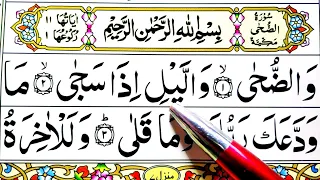 سُورَةُ الضُّحٰى مَكِّيَّةٌ
بِسْمِ اللهِ الرَّحْمٰنِ الرَّحِيْمِ
اٰيَاتُهَا ١١ رُكُوْعُهَا ١
وَالضُّحٰى ۝١ وَالَّيْلِ اِذَا سَجٰى ۝٢ مَا
وَدَّعَكَ وَمَا قَلٰى ۝٣ وَلَلْاٰخِرَةُ